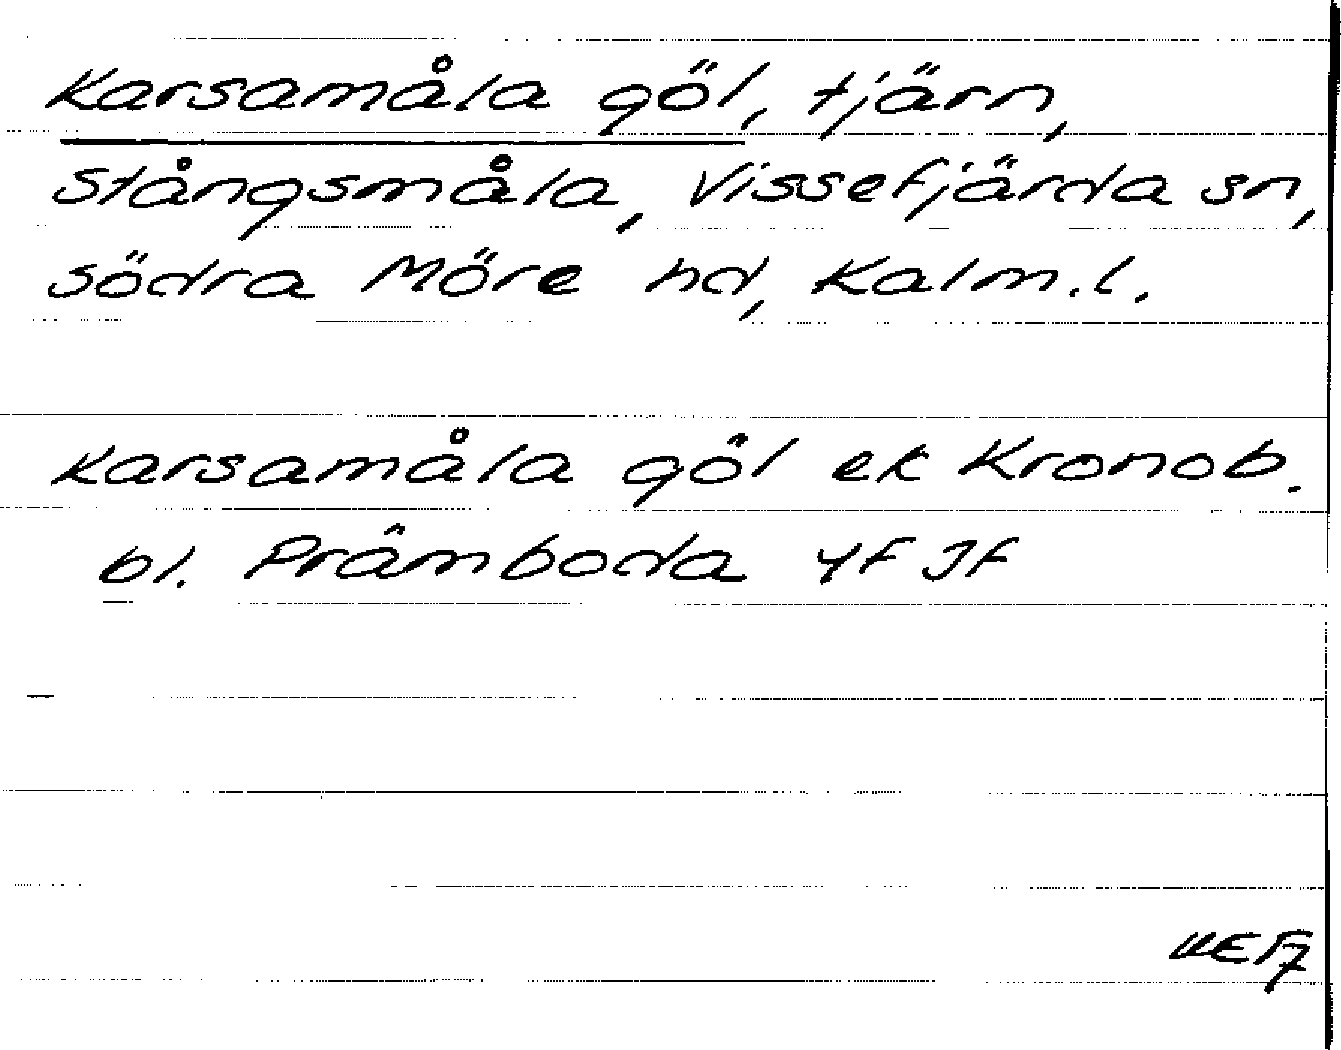 Karsamåla göl, tjärn,
Stångsmåla, Vissefjärda sn,
södra Möre hd, Kalm.l.
Karsamåla göl ek Kronob.
bl. Prämboda 4F JF